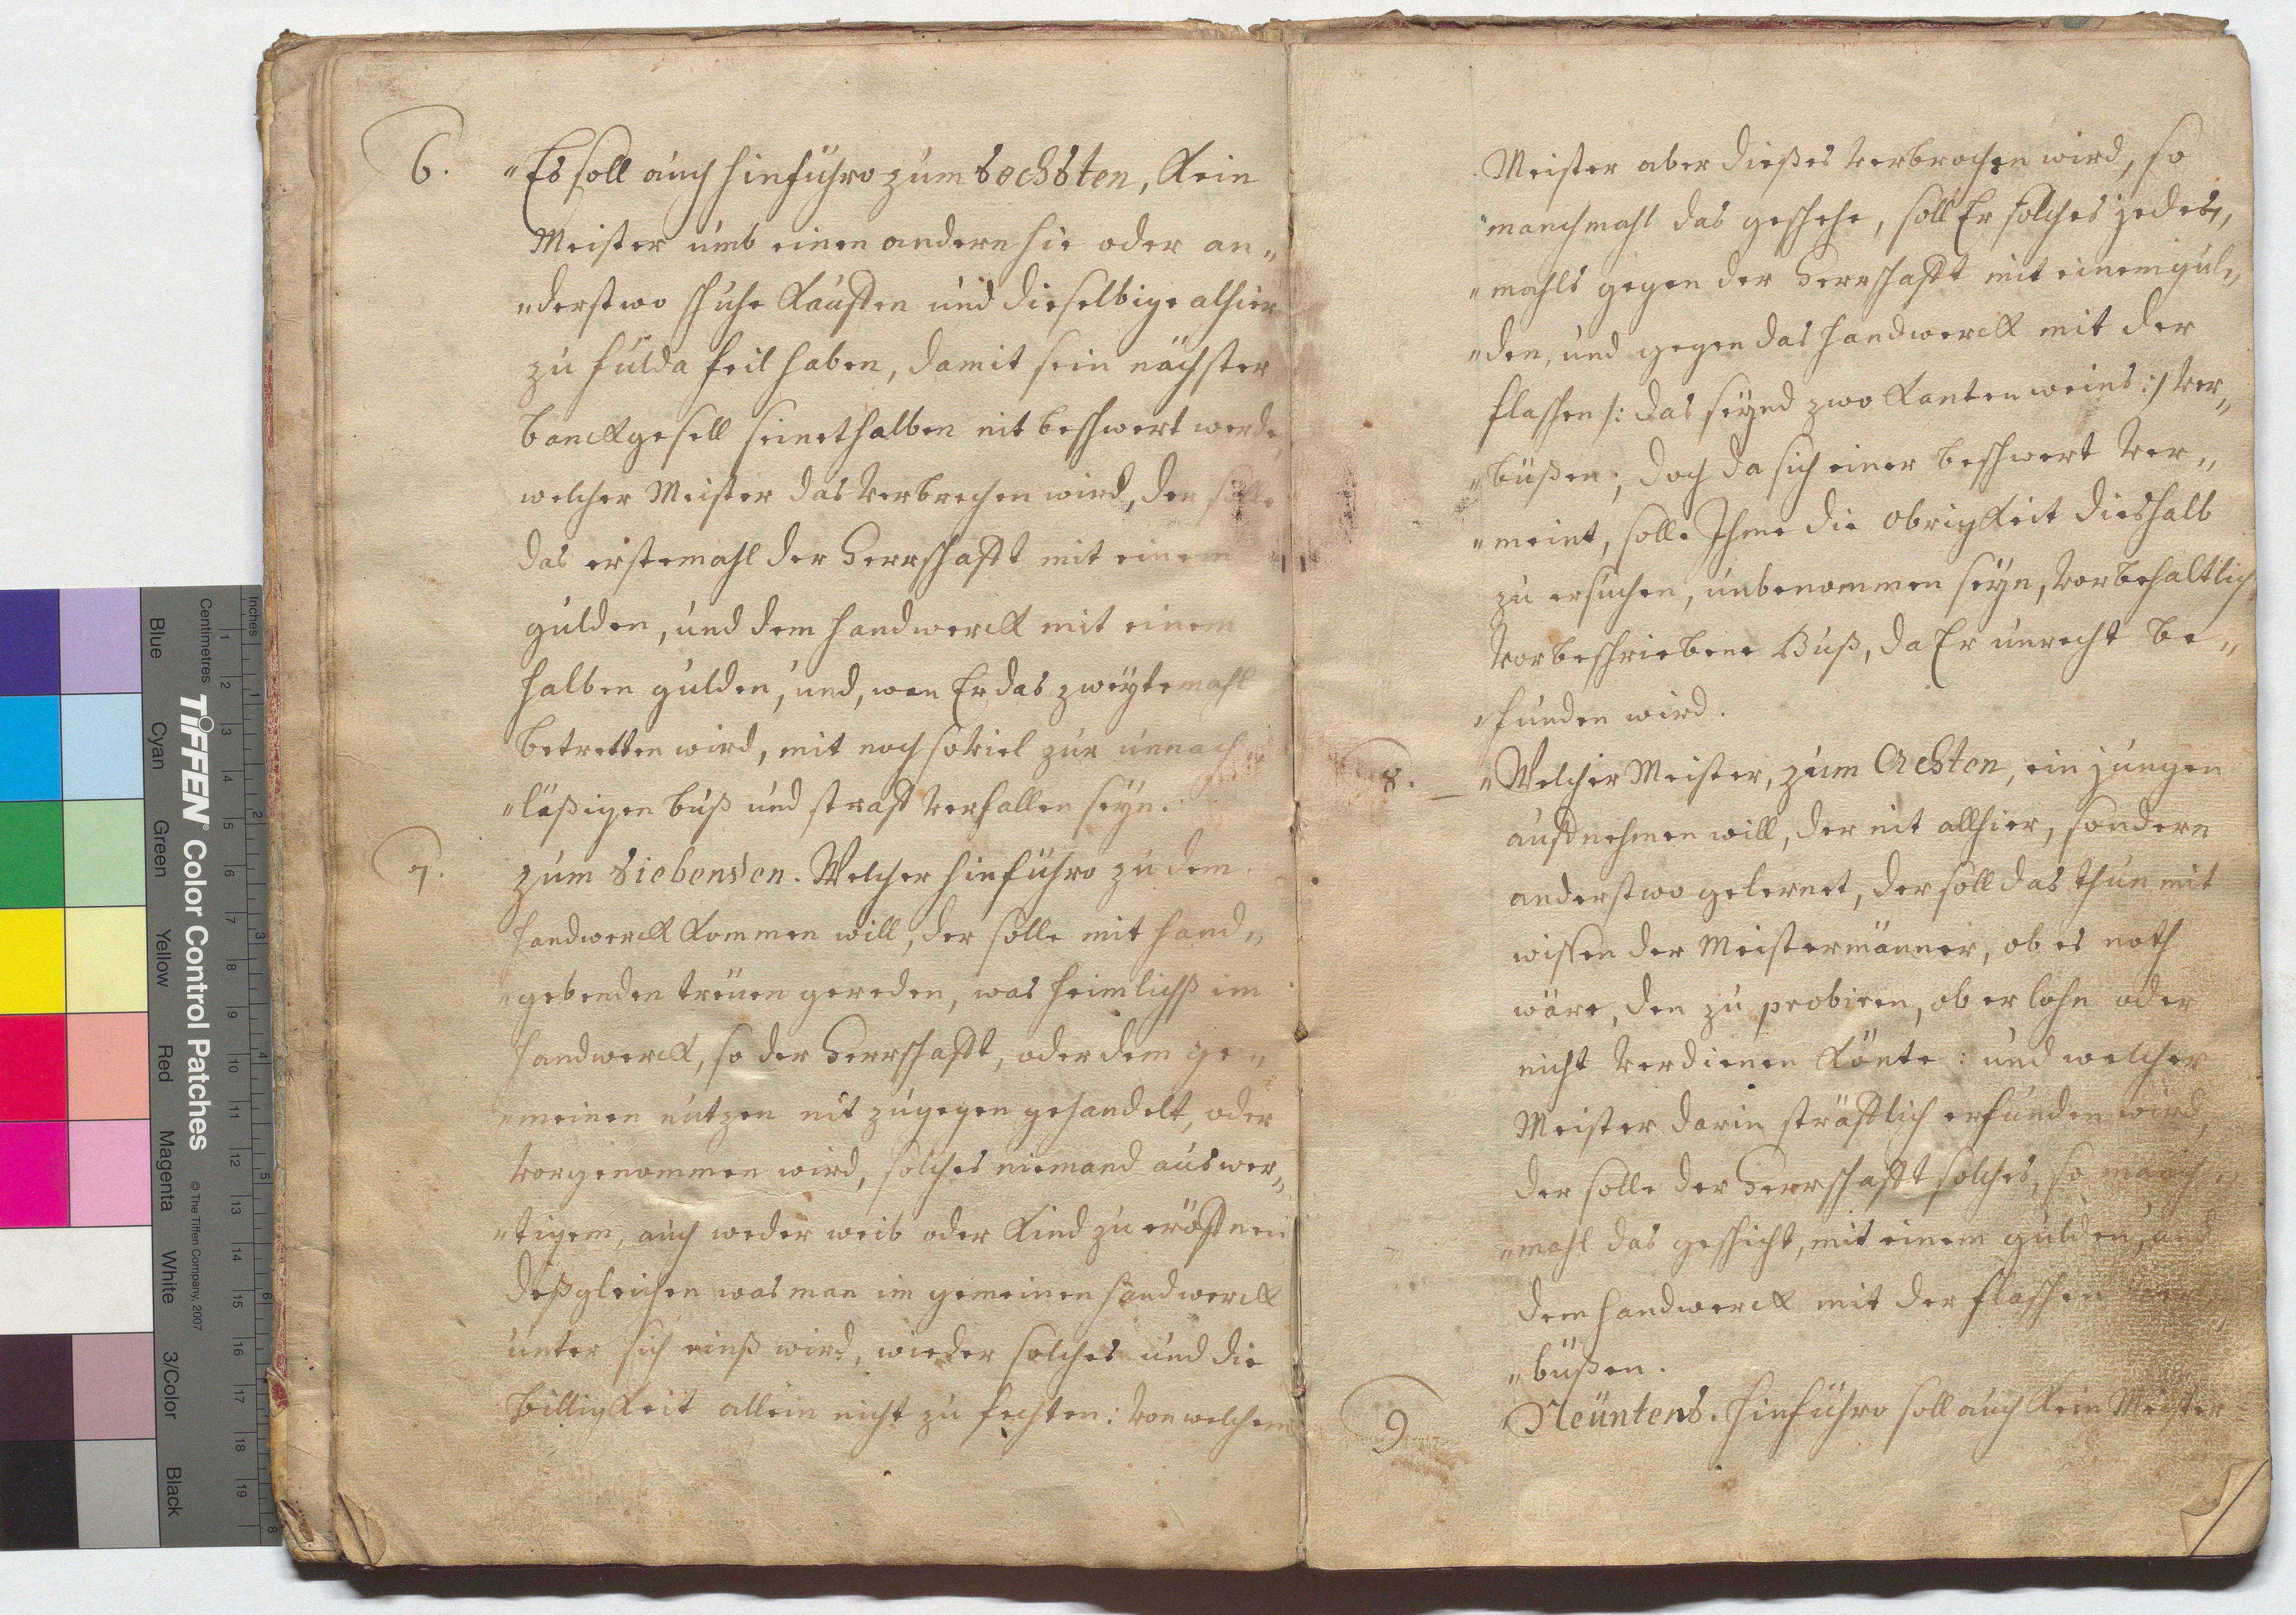 6.
„Es soll auch hinführo zum sechsten, Kein
Meister umb einen andern hie oder an„
„derstwo schuhe Kauffen und dieselbige alhier
zu fulda feil haben, damit sein nächster
banckgesell seinethalben nit beschwert werde,
welcher Meister das verbrechen wird, der solle
das erstemahl der Herrschafft mit einem
gulden, und dem handwerck mit einem
halben gulden, und, wan Er das zweytemahl
betretten wird, mit noch soviel zur unnach
„läßigen buß und straff verfallen seyn.
7.
zum siebenden. Welcher hinführo zu dem
handwerck Kommen will, der solle mit hand„
„gebenden treuen gereden, was heimlichß im
handwerck, so der Herrschafft, oder dem ge„
„meinen nutzen nit zugegen gehandelt, oder
vorgenommen wird, solches niemand auswer„
„tigem, auch weder weib oder Kind zu eröffnen
deßgleichen was man im gemeinen handwerck
unter sich einß wird, wieder solches und die
billigKeit allein nicht zu fechten: von welchem
Meister aber dießes verbrochen wird, so
manchmahl das geschehe, soll Er solches jedes„
„mahls gegen der Herrschafft mit einem gul„
„den, und gegen das handwerck mit der
flaschen /: das seynd zwo Kanten weins :/ ver„
„büßen; doch da sich einer beschwert ver„
„meint, solle Ihme die obrigKeit dieshalb
zu ersuchen, unbenommen seyn, vorbehaltlich
vorbeschriebene Buß, da Er unrecht be„
„funden wird.
8.
„Welcher Meister, zum Achten, ein jungen
auffnehmen will, der nit allhier, sondern
anderstwo gelernet, der soll das thun mit
wissen der Meistermänner, ob es noth
wäre, den zu probiren, ob er lohn oder
nicht verdienen Könte: und welcher
Meister darin sträfflich erfunden wird,
der solle der Herrschafft solches, so manch„
„mahl das geschicht, mit einem gulden, und
dem handwerck mit der flaschen ver„
„büßen.
9
Neuntens. Hinführo soll auch Kein Meister
Inches
Centimetres
TIFFEN® Color Control Patches
© The Tiffen Company, 2007
Blue Cyan Green Yellow Red Magenta White 3/Color Black
1 2 3 4 5 6 7 8 9 10 11 12 13 14 15 16 17 18 19
1 2 3 4 5 6 8